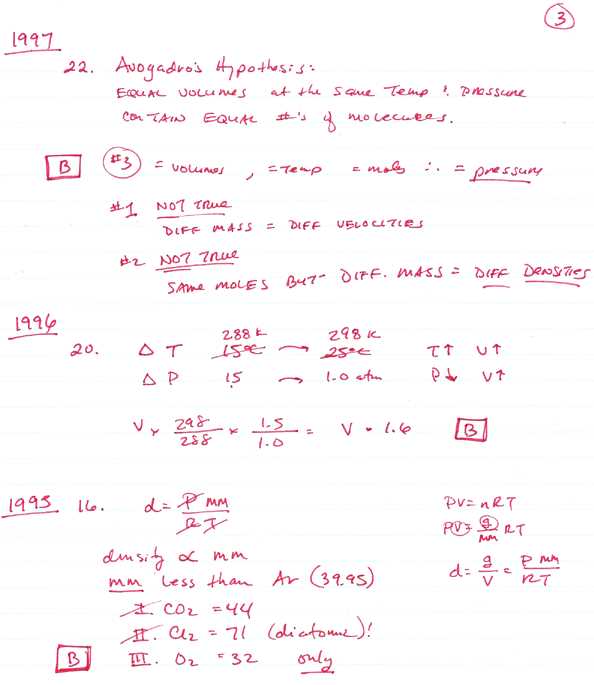 3
1997
22. Avogadro's Hypothesis:
EQUAL VOLUMES at the same Temp & pressure
CONTAIN EQUAL #'s of molecules.
B #3 = volumes, = Temp = moles ∴ = pressure
#1 NOT TRUE
DIFF MASS = DIFF VELOCITIES
#2 NOT TRUE
SAME MOLES BUT DIFF. MASS = DIFF DENSITIES
1996
288 K 298 K
20. Δ T 15°C → 25°C T↑ V↑
Δ P 1.5 → 1.0 atm P↓ V↑
V × 298/288 × 1.5/1.0 = V • 1.6 B
1995 16. d = P mm / RT
PV = nRT
PV = g/mm RT
d = g/V = P mm / RT
density ∝ mm
mm less than Ar (39.95)
I. CO2 = 44
II. Cl2 = 71 (diatomic)!
B III. O2 = 32 only